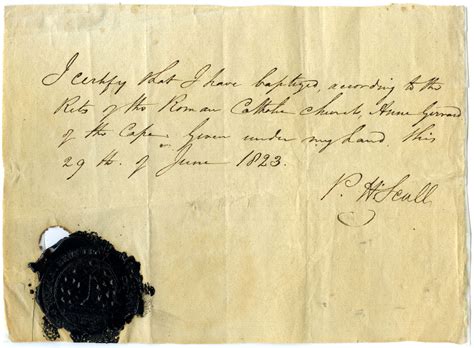 I certify that I have baptized, according to the
Rits of the Roman Catholic Church, Anne Gerrard
of the Cape. Given under my hand. this
29 th. of June 1823.
P. H. Scall